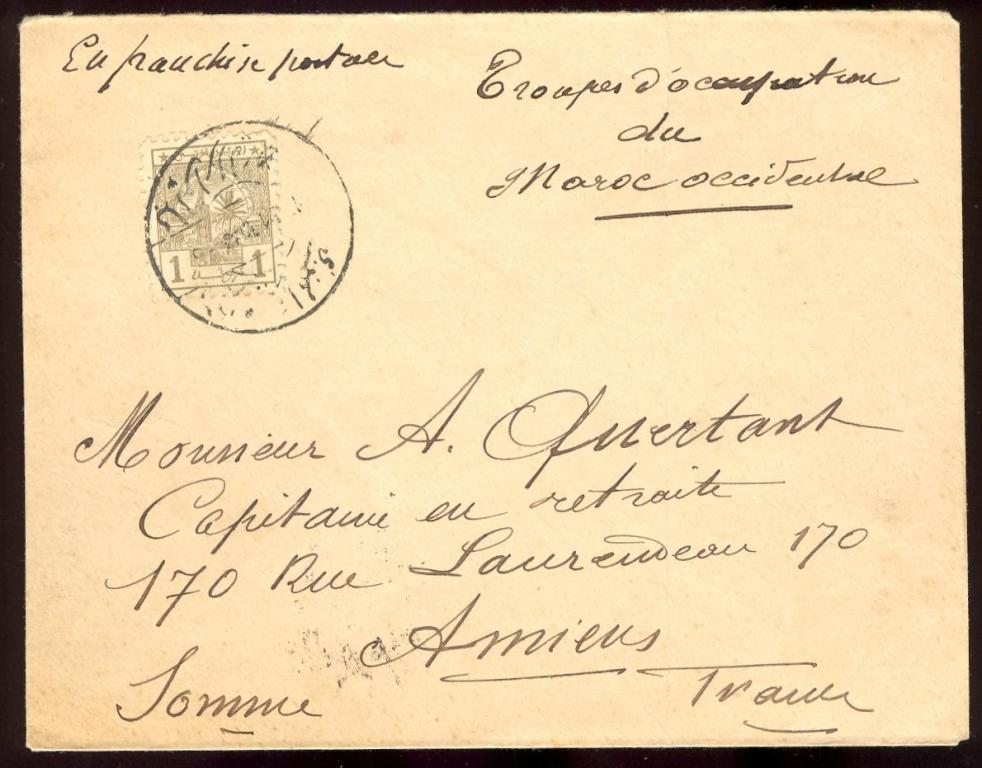 En franchise postale
Troupes d'occupation
du
Maroc occidental
1 1
Monsieur A. Quertant
Capitaine en retraite
170 Rue Laurendeau 170
Amiens
Somme
France